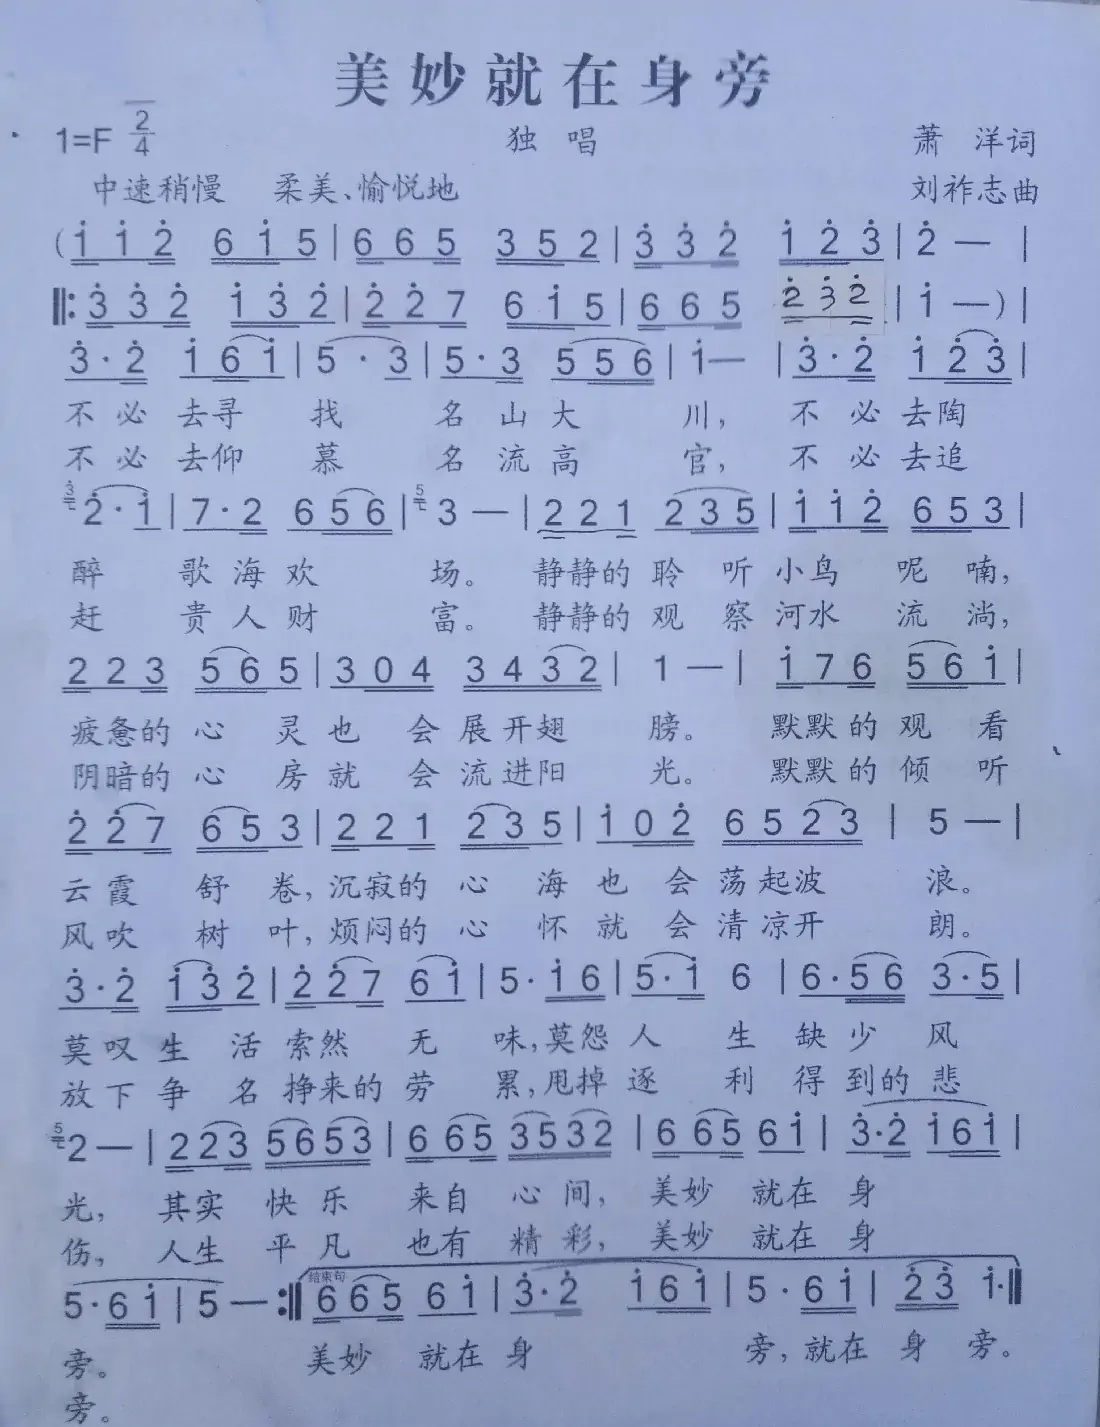 美妙就在身旁
1=F 2/4 独唱 萧洋词
中速稍慢 柔美、愉悦地 刘祚志曲
(1 1 2 6 1 5 | 6 6 5 3 5 2 | 3 3 2 1 2 3 | 2 — |
‖: 3 3 2 1 3 2 | 2 2 7 6 1 5 | 6 6 5 2 3 2 | 1 —) |
3 · 2 1 6 1 | 5 · 3 | 5 · 3 5 5 6 | 1 — | 3 · 2 1 2 3 |
不必去寻找名山大川,不必去陶
不必去仰慕名流高官,不必去追
3 2 · 1 | 7 · 2 6 5 6 | 5 3 — | 2 2 1 2 3 5 | 1 1 2 6 5 3 |
醉歌海欢场。静静的聆听小鸟呢喃,
赶贵人财富。静静的观察河水流淌,
2 2 3 5 6 5 | 3 0 4 3 4 3 2 | 1 — | 1 7 6 5 6 1 |
疲惫的心灵也会展开翅膀。默默的观看
阴暗的心房就会流进阳光。默默的倾听
2 2 7 6 5 3 | 2 2 1 2 3 5 | 1 0 2 6 5 2 3 | 5 — |
云霞舒卷,沉寂的心海也会荡起波浪。
风吹树叶,烦闷的心怀就会清凉开朗。
3 · 2 1 3 2 | 2 2 7 6 1 | 5 · 1 6 | 5 · 1 6 | 6 · 5 6 3 · 5 |
莫叹生活索然无味,莫怨人生缺少风
放下争名挣来的劳累,甩掉逐利得到的悲
5 2 — | 2 2 3 5 6 5 3 | 6 6 5 3 5 3 2 | 6 6 5 6 1 | 3 · 2 1 6 1 |
光,其实快乐来自心间,美妙就在身
伤,人生平凡也有精彩,美妙就在身
5 · 6 1 | 5 — :‖ 结束句 6 6 5 6 1 | 3 · 2 1 6 1 | 5 · 6 1 | 2 3 1 · ‖
旁。美妙就在身旁,就在身旁。
旁。